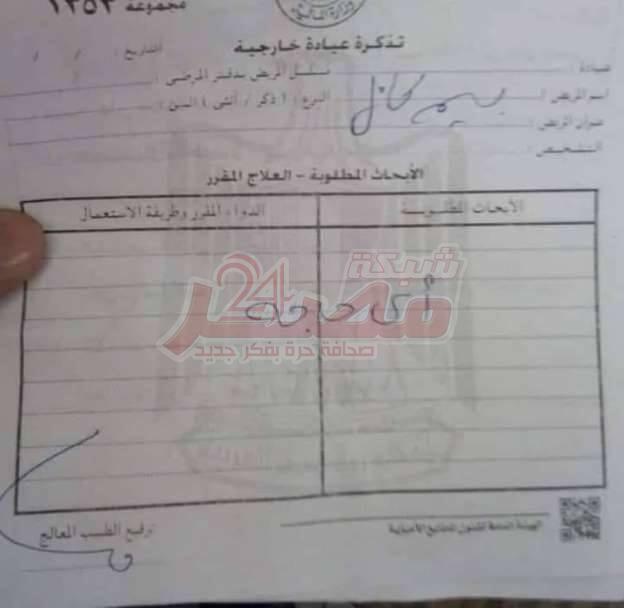 مجموعة ١٣٥٣
وزارة المالية
تذكرة عيادة خارجية
التاريخ : / /
عيادة :
تسلسل المريض بدفتر المرضى :
اسم المريض : بسيم كامل
النوع : ( ذكر / أنثى ) السن :
عنوان المريض :
التشخيص :
الأبحاث المطلوبة - العلاج المقرر
الأبحاث المطلوبة
الدواء المقرر وطريقة الاستعمال
أي حاجه
شبكة
مصر 24
صحافة حرة بفكر جديد
توقيع الطبيب المعالج
الهيئة العامة لشئون المطابع الأميرية